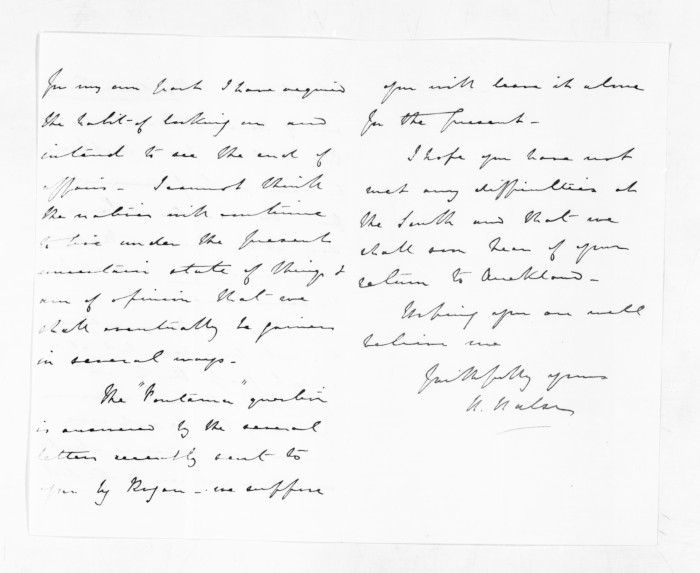 For my own part I have acquired
the habit of looking on and
intend to see the end of
affairs - I cannot think
the natives will continue
to live under the present
uncertain state of things &
am of opinion that we
shall eventually be gainers
in several ways -
The "Pontama" question
is answered by the several
letters recently sent to
you by Rogan - we suppose
you will leave it alone
for the present -
I hope you have not
met any difficulties at
the South and that we
shall soon hear of your
return to Auckland -
Hoping you are well
believe me
faithfully yours